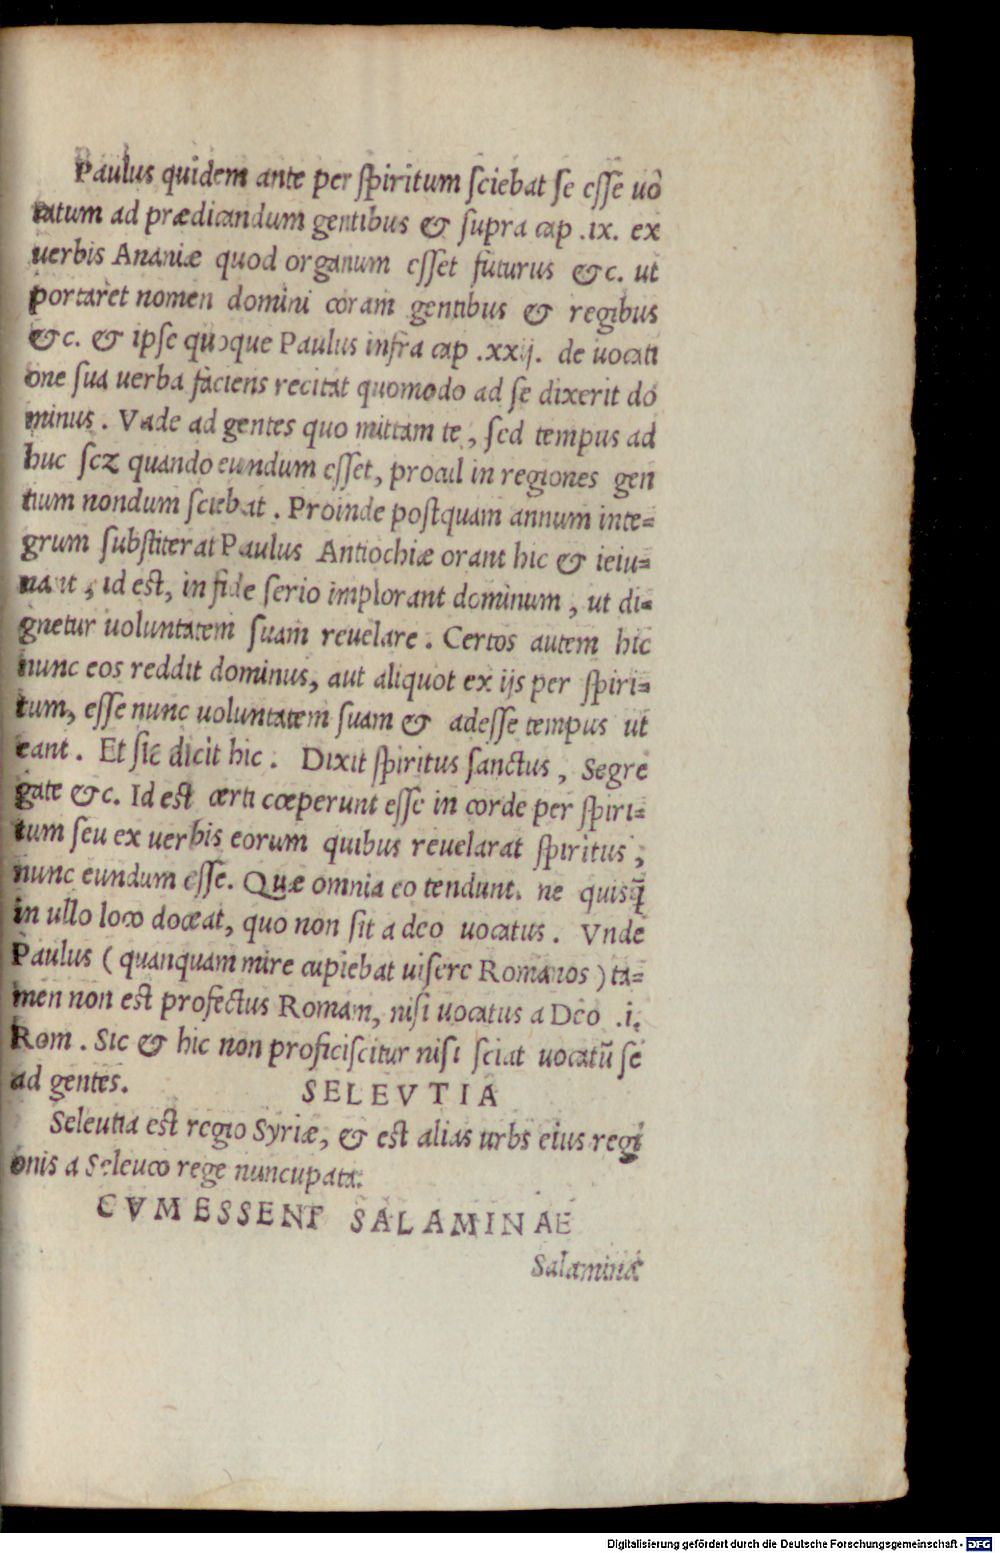 Paulus quidem ante per ſpiritum ſciebat ſe eſſe uo
catum ad prædicandum gentibus & ſupra cap .ix. ex
uerbis Ananiæ quod organum eſſet futurus &c. ut
portaret nomen domini coram gentibus & regibus
&c. & ipſe quoque Paulus infra cap .xxij. de uocati
one ſua uerba faciens recitat quomodo ad ſe dixerit do
minus. Vade ad gentes quo mittam te, ſed tempus ad
huc ſcz quando eundum eſſet, procul in regiones gen
tium nondum ſciebat. Proinde poſtquam annum inte=
grum ſubſtiterat Paulus Antiochiæ orant hic & ieiu=
nant, id eſt, in fide ſerio implorant dominum, ut di=
gnetur uoluntatem ſuam reuelare. Certos autem hic
nunc eos reddit dominus, aut aliquot ex ijs per ſpiri=
tum, eſſe nunc uoluntatem ſuam & adeſſe tempus ut
eant. Et ſic dicit hic. Dixit ſpiritus ſanctus, Segre
gate &c. Id est certi cœperunt eſſe in corde per ſpiri=
tum ſeu ex uerbis eorum quibus reuelarat ſpiritus,
nunc eundum eſſe. Quæ omnia eo tendunt. ne quisq̃
in ullo loco doceat, quo non ſit a deo uocatus. Vnde
Paulus (quanquam mire cupiebat uiſere Romanos) ta=
men non eſt profectus Romam, niſi uocatus a Deo .i.
Rom. Sic & hic non proficiſcitur niſi ſciat uocatū ſe
ad gentes.
SELEVTIA
Seleutia eſt regio Syriæ, & eſt alias urbs eius regi
onis a Seleuco rege nuncupata.
CVM ESSENT SALAMINAE
Salaminæ
Digitalisierung gefördert durch die Deutsche Forschungsgemeinschaft - DFG